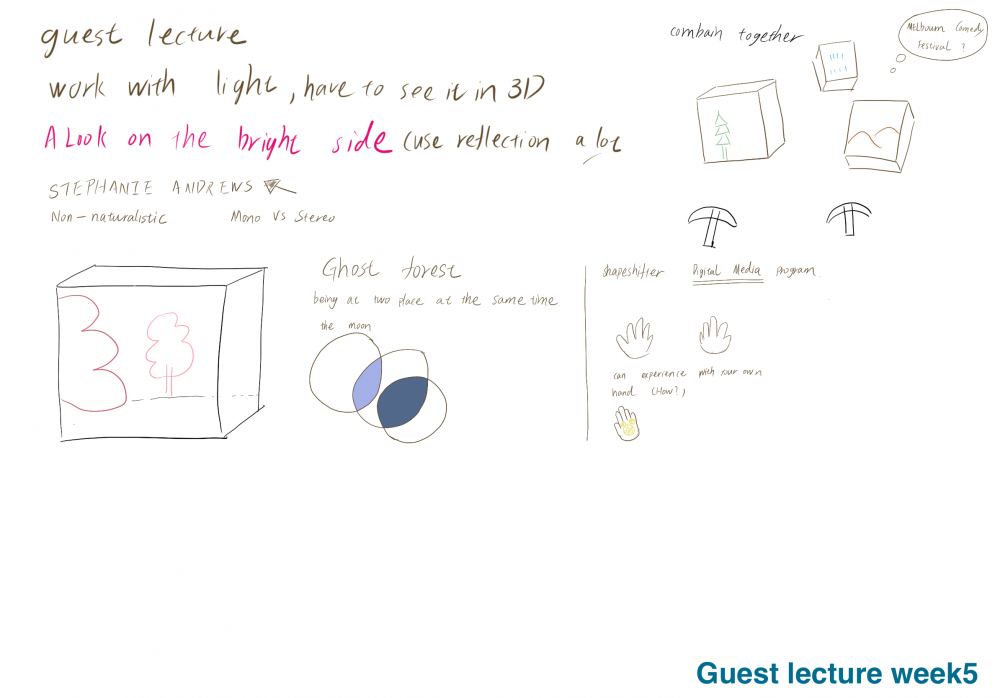 guest lecture
work with light, have to see it in 3D
A Look on the bright side (use reflection a lot
STEPHANIE ANDREWS
Non-naturalistic Mono VS Stereo
combain together
MElbourn Comedy
Festival ?
Ghost forest
being at two place at the same time
the moon
shapeshifter Digital Media program
can experience with your own
hand (How?)
Guest lecture week5